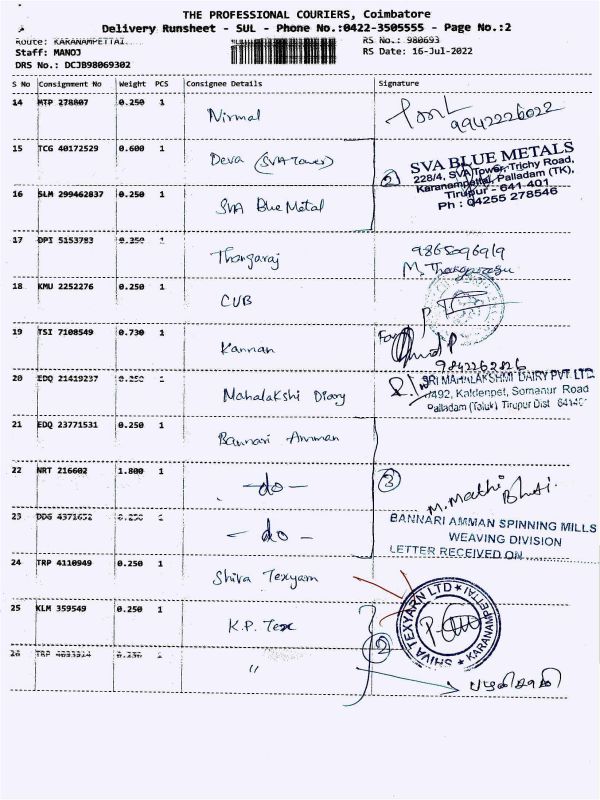 THE PROFESSIONAL COURIERS, Coimbatore
Delivery Runsheet - SUL - Phone No.:0422-3505555 - Page No.:2
Route: KARANAMPETTAI
RS No.: 980693
Staff: MANOJ
RS Date: 16-Jul-2022
DRS No.: DCJB98069302
S No Consignment No Weight PCS Consignee Details Signature
14 MTP 278807 0.250 1 Nirmal 9942226022
15 TCG 40172529 0.600 1 Deva (SVA Tower)
2 SVA BLUE METALS
228/4, SVA Tower, Trichy Road,
Karanampettai, Palladam (TK),
Tirupur - 641-401
Ph : 04255 278546
16 SLM 299462837 0.250 1 SVA Blue Metal
17 DPI 5153783 0.250 1 Thangaraj
M. Thangarasu
18 KMU 2252276 0.250 1 CUB
19 TSI 7108549 0.730 1 Kannan For
9842262826
20 EDQ 21419237 0.250 1 Mahalakshi Diary
SRI MAHALAKSHMI DAIRY PVT. LTD.
Somanur Road
Palladam (Taluk) Tirupur Dist
21 EDQ 23771531 0.250 1 Bannari Amman
22 NRT 216602 1.800 1 -do-
3 M. Mathi Bharti.
BANNARI AMMAN SPINNING MILLS
WEAVING DIVISION
LETTER RECEIVED ON
23 DDG 4371652 0.250 1 -do-
24 TRP 4110949 0.250 1 Shiva Texyarn
SHIVA TEXYARN LTD ★ KARANAMPETTAI ★
25 KLM 359549 0.250 1 K.P. Tex
2
26 TRP 4033314 0.250 1 "